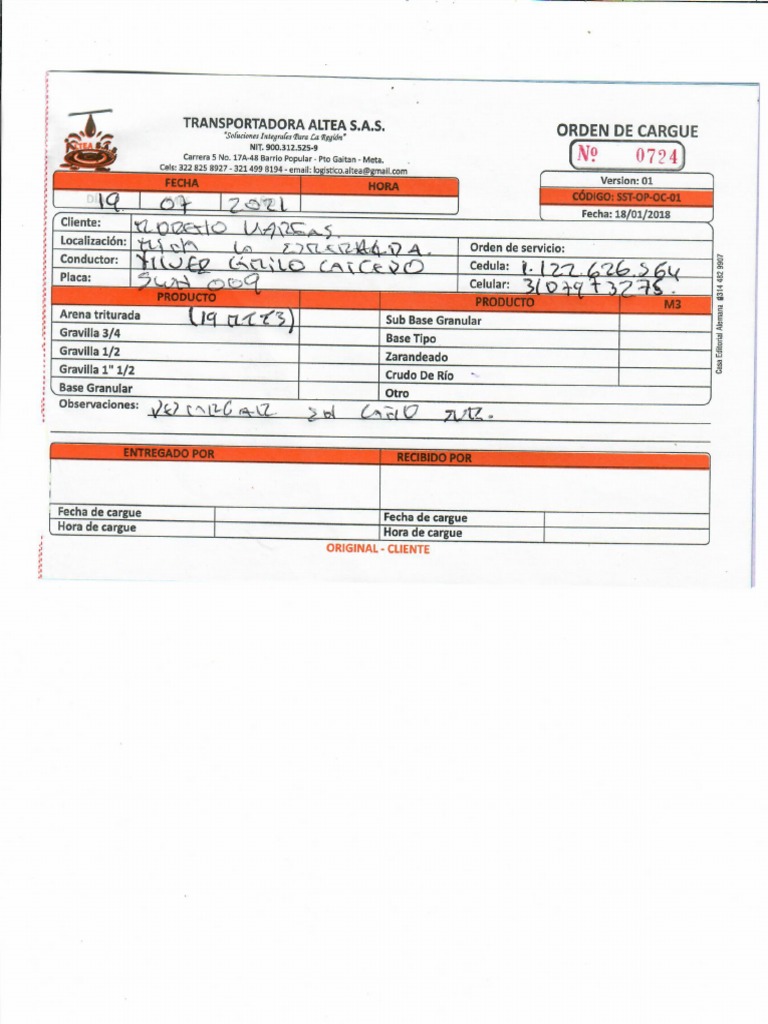 TRANSPORTADORA ALTEA S.A.S.
"Soluciones Integrales Para La Región"
NIT. 900.312.525-9
Carrera 5 No. 17A-48 Barrio Popular - Pto Gaitan - Meta.
Cels: 322 825 8927 - 321 499 8194 - email: logistico.altea@gmail.com
ALTEA S.A.S.
ORDEN DE CARGUE
Nº 0724
Version: 01
CÓDIGO: SST-OP-OC-01
Fecha: 18/01/2018
FECHA HORA
19 07 2021
Cliente: VARGAS.
Localización: LA ESMERALDA.
Orden de servicio:
Conductor: CAMILO CAICEDO
Cedula: 1.122.626.564
Placa: 009
Celular: 3107973275.
PRODUCTO PRODUCTO M3
Arena triturada (19 MTS3)
Sub Base Granular
Gravilla 3/4
Base Tipo
Gravilla 1/2
Zarandeado
Gravilla 1" 1/2
Crudo De Río
Base Granular
Otro
Observaciones: DESCARGAR EN CAÑO
ENTREGADO POR RECIBIDO POR
Fecha de cargue Fecha de cargue
Hora de cargue Hora de cargue
ORIGINAL - CLIENTE
Casa Editorial Alemana 314 482 9907